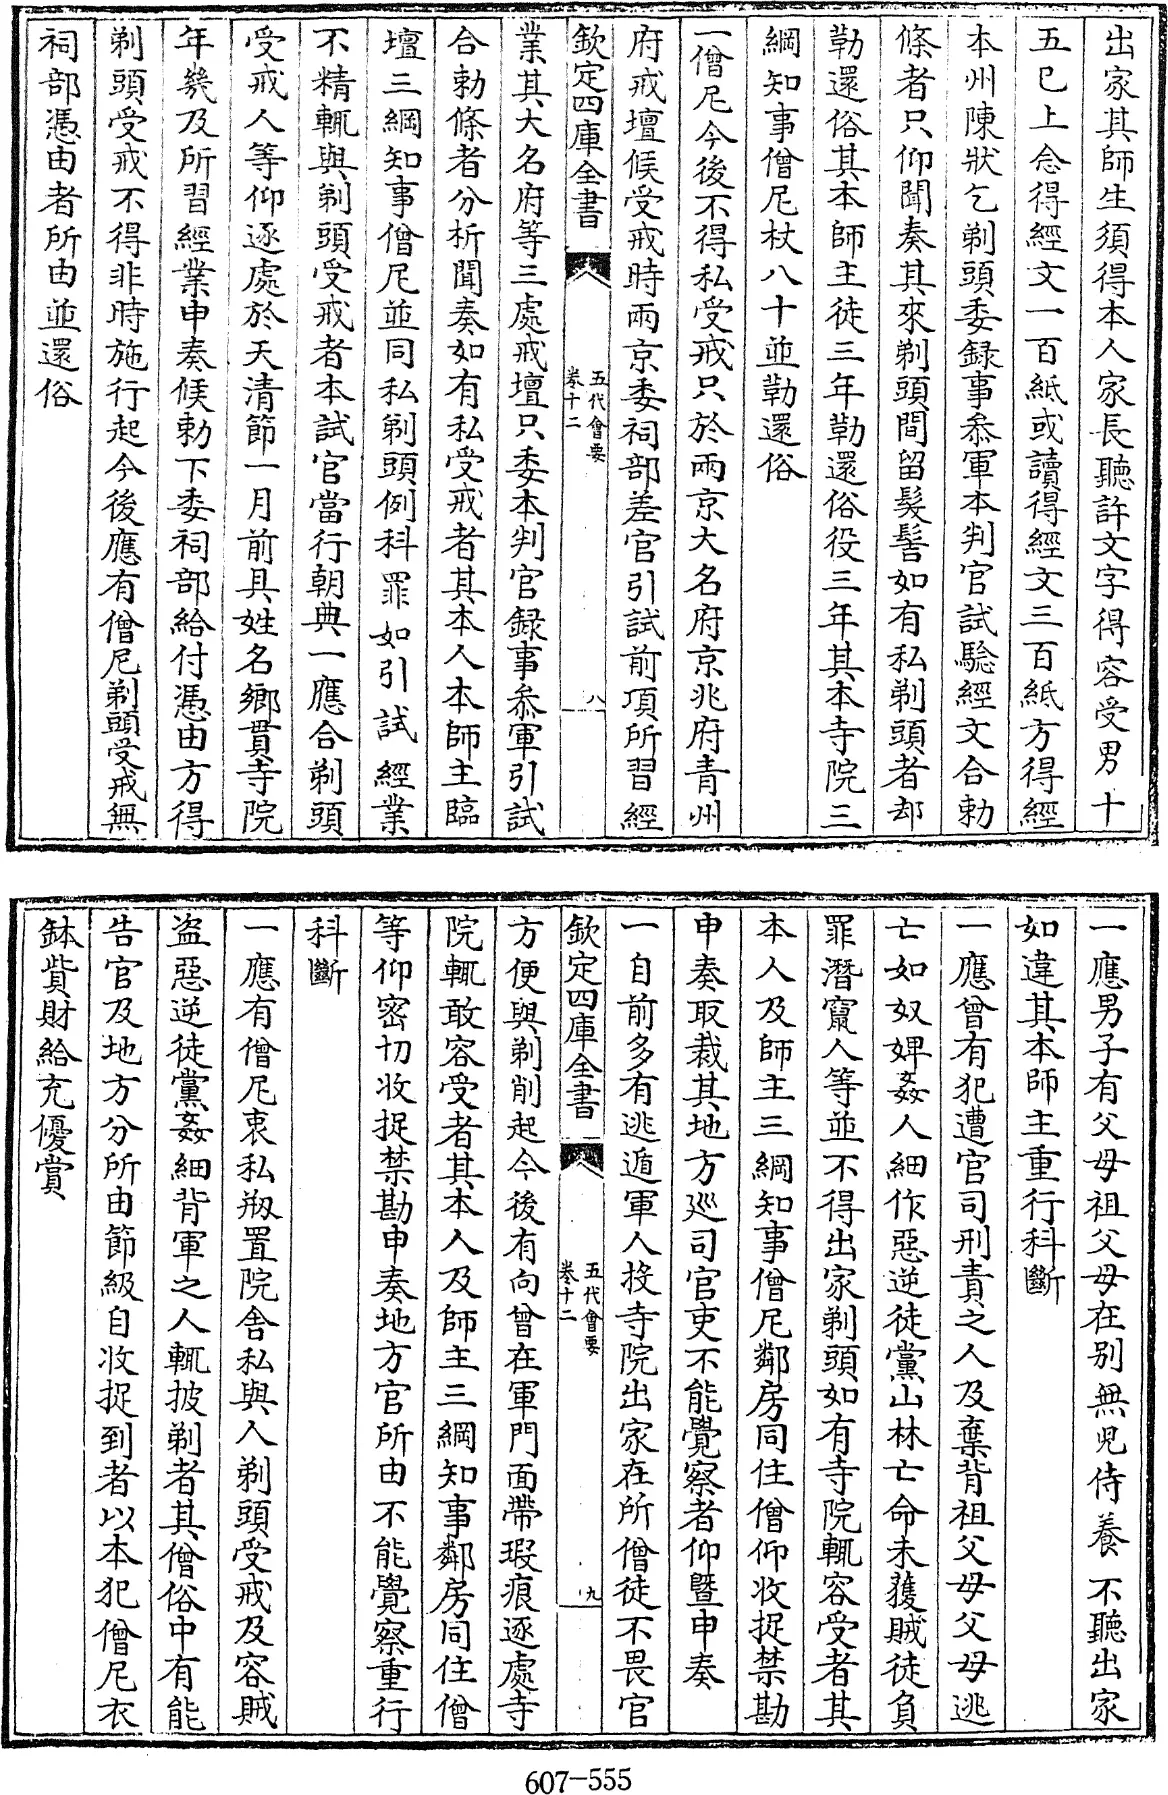 出家其師生須得本人家長聽許文字得容受男十
五已上念得經文一百紙或讀得經文三百紙方得經
本州陳狀乞剃頭委録事叅軍本判官試驗經文合勅
條者只仰聞奏其來剃頭間留髮髻如有私剃頭者却
勒還俗其本師主徒三年勒還俗役三年其本寺院三
綱知事僧尼杖八十並勒還俗
一僧尼今後不得私受戒只於兩京大名府京兆府青州
府戒壇候受戒時兩京委祠部差官引試前項所習經
欽定四庫全書
五代會要
卷十二
八
業其大名府等三處戒壇只委本判官録事叅軍引試
合勅條者分析聞奏如有私受戒者其本人本師主臨
壇三綱知事僧尼並同私剃頭例科罪如引試經業
不精輒與剃頭受戒者本試官當行朝典一應合剃頭
受戒人等仰逐處於天清節一月前具姓名鄉貫寺院
年㡬及所習經業申奏候勅下委祠部給付憑由方得
剃頭受戒不得非時施行起今後應有僧尼剃頭受戒無
祠部憑由者所由並還俗
一應男子有父母祖父母在别無兒侍養不聽出家
如違其本師主重行科斷
一應曾有犯遭官司刑責之人及棄背祖父母父母逃
亡如奴婢姦人細作惡逆徒黨山林亡命未獲賊徒負
罪潛竄人等並不得出家剃頭如有寺院輒容受者其
本人及師主三綱知事僧尼鄰房同住僧仰收捉禁勘
申奏取裁其地方廵司官吏不能覺察者仰暨申奏
一自前多有逃遁軍人投寺院出家在所僧徒不畏官
欽定四庫全書
五代會要
卷十二
九
方便與剃削起今後有向曾在軍門面帶瑕痕逐處寺
院輒敢容受者其本人及師主三綱知事鄰房同住僧
等仰密切收捉禁勘申奏地方官所由不能覺察重行
科斷
一應有僧尼衷私剏置院舍私與人剃頭受戒及容賊
盗惡逆徒黨姦細背軍之人輒披剃者其僧俗中有能
告官及地方分所由節級自收捉到者以本犯僧尼衣
鉢貲財給充優賞
607-555